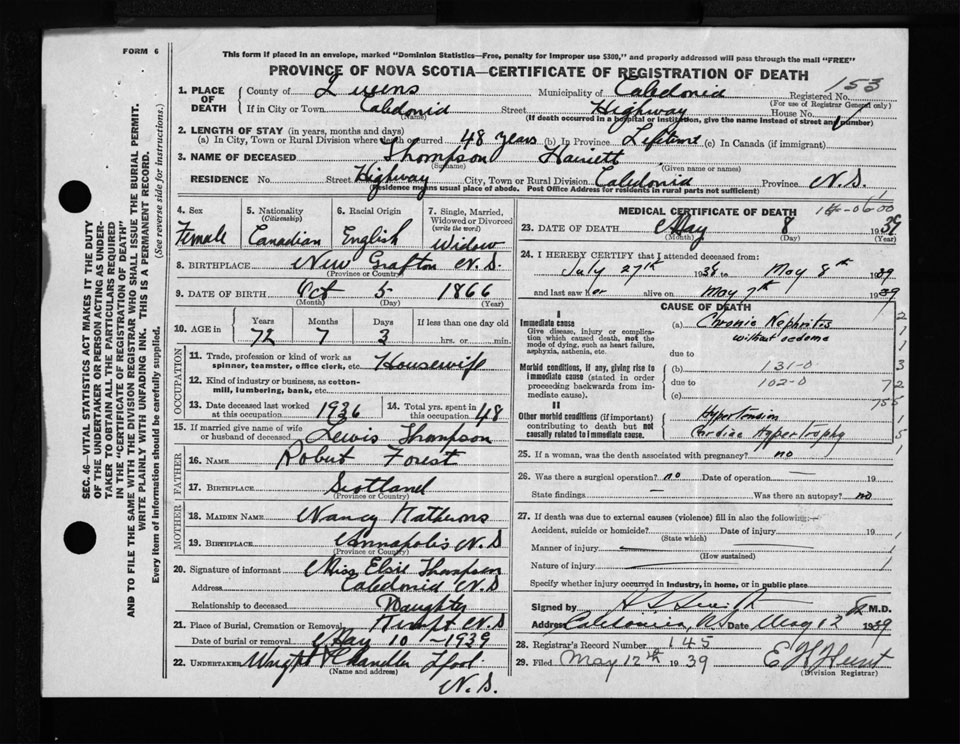 FORM 6
This form if placed in an envelope, marked "Dominion Statistics—Free, penalty for improper use $300," and properly addressed will pass through the mail "FREE"
PROVINCE OF NOVA SCOTIA—CERTIFICATE OF REGISTRATION OF DEATH
153
1. PLACE OF DEATH County of Queens Municipality of Caledonia Registered No.
(For use of Registrar General only)
If in City or Town Caledonia Street Highway House No.
(Name) (If death occurred in a hospital or institution, give the name instead of street and number)
2. LENGTH OF STAY (in years, months and days)
(a) In City, Town or Rural Division where death occurred 48 years (b) In Province Lifetime (c) In Canada (if immigrant)
3. NAME OF DECEASED Thompson Harriett
(Surname) (Given name or names)
RESIDENCE No. Street Highway City, Town or Rural Division Caledonia Province N.S.
(Residence means usual place of abode. Post Office Address for residents in rural parts not sufficient)
4. Sex Female
5. Nationality (Citizenship) Canadian
6. Racial Origin English
7. Single, Married, Widowed or Divorced (write the word) Widow
8. BIRTHPLACE New Grafton N.S.
(Province or Country)
9. DATE OF BIRTH Oct 5 1866
(Month) (Day) (Year)
10. AGE in Years Months Days If less than one day old
72 7 3 hrs. or min.
OCCUPATION
11. Trade, profession or kind of work as spinner, teamster, office clerk, etc. Housewife
12. Kind of industry or business, as cotton-mill, lumbering, bank, etc.
13. Date deceased last worked at this occupation 1936
14. Total yrs. spent in this occupation 48
15. If married give name of wife or husband of deceased Lewis Thompson
FATHER
16. NAME Robert Forest
17. BIRTHPLACE Scotland
(Province or Country)
MOTHER
18. MAIDEN NAME Nancy
19. BIRTHPLACE Annapolis N.S
(Province or Country)
20. Signature of informant Miss Elsie Thompson
Address Caledonia N.S
Relationship to deceased Daughter
21. Place of Burial, Cremation or Removal Kempt N.S
Date of burial or removal May 10 1939
22. UNDERTAKER Wright & Chandler L'pool
(Name and address)
N.S.
MEDICAL CERTIFICATE OF DEATH
23. DATE OF DEATH May 8 1939
(Month) (Day) (Year)
24. I HEREBY CERTIFY that I attended deceased from:
July 27th 1938 to May 8th 1939
and last saw her alive on May 7th 1939
CAUSE OF DEATH
I
Immediate cause
Give disease, injury or complication which caused death, not the mode of dying, such as heart failure, asphyxia, asthenia, etc.
(a) Chronic Nephritis
without oedema
due to
Morbid conditions, if any, giving rise to immediate cause (stated in order proceeding backwards from immediate cause).
(b) 131-0
due to 102-0
(c)
II
Other morbid conditions (if important) contributing to death but not causally related to immediate cause.
Hypertension
Cardiac Hypertrophy
25. If a woman, was the death associated with pregnancy? no
26. Was there a surgical operation? no Date of operation — 19
State findings — Was there an autopsy? no
27. If death was due to external causes (violence) fill in also the following:—
Accident, suicide or homicide? Date of injury 19
(State which)
Manner of injury
(How sustained)
Nature of injury
Specify whether injury occurred in industry, in home, or in public place
Signed by H S Smith M.D.
Address Caledonia, N.S Date May 12 1939
28. Registrar's Record Number 145
29. Filed May 12th 1939 E H Hunt
(Division Registrar)
SEC. 46—VITAL STATISTICS ACT MAKES IT THE DUTY
OF THE UNDERTAKER OR PERSON ACTING AS UNDER-
TAKER TO OBTAIN ALL THE PARTICULARS REQUIRED
IN THE "CERTIFICATE OF REGISTRATION OF DEATH"
AND TO FILE THE SAME WITH THE DIVISION REGISTRAR WHO SHALL ISSUE THE BURIAL PERMIT.
WRITE PLAINLY WITH UNFADING INK. THIS IS A PERMANENT RECORD.
Every item of information should be carefully supplied. (See reverse side for instructions.)